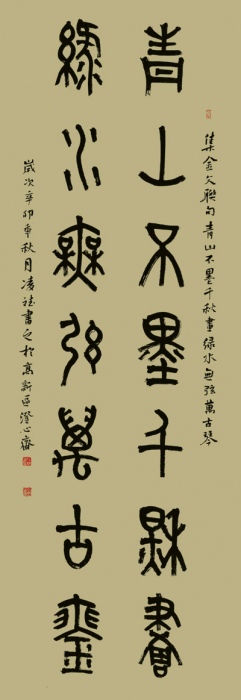 集金文聯句青山不墨千秋畫綠水無弦萬古琴
青山不墨千秋畫
綠水無弦萬古琴
歲次辛卯年秋月凌社書之於高新區澄心齋